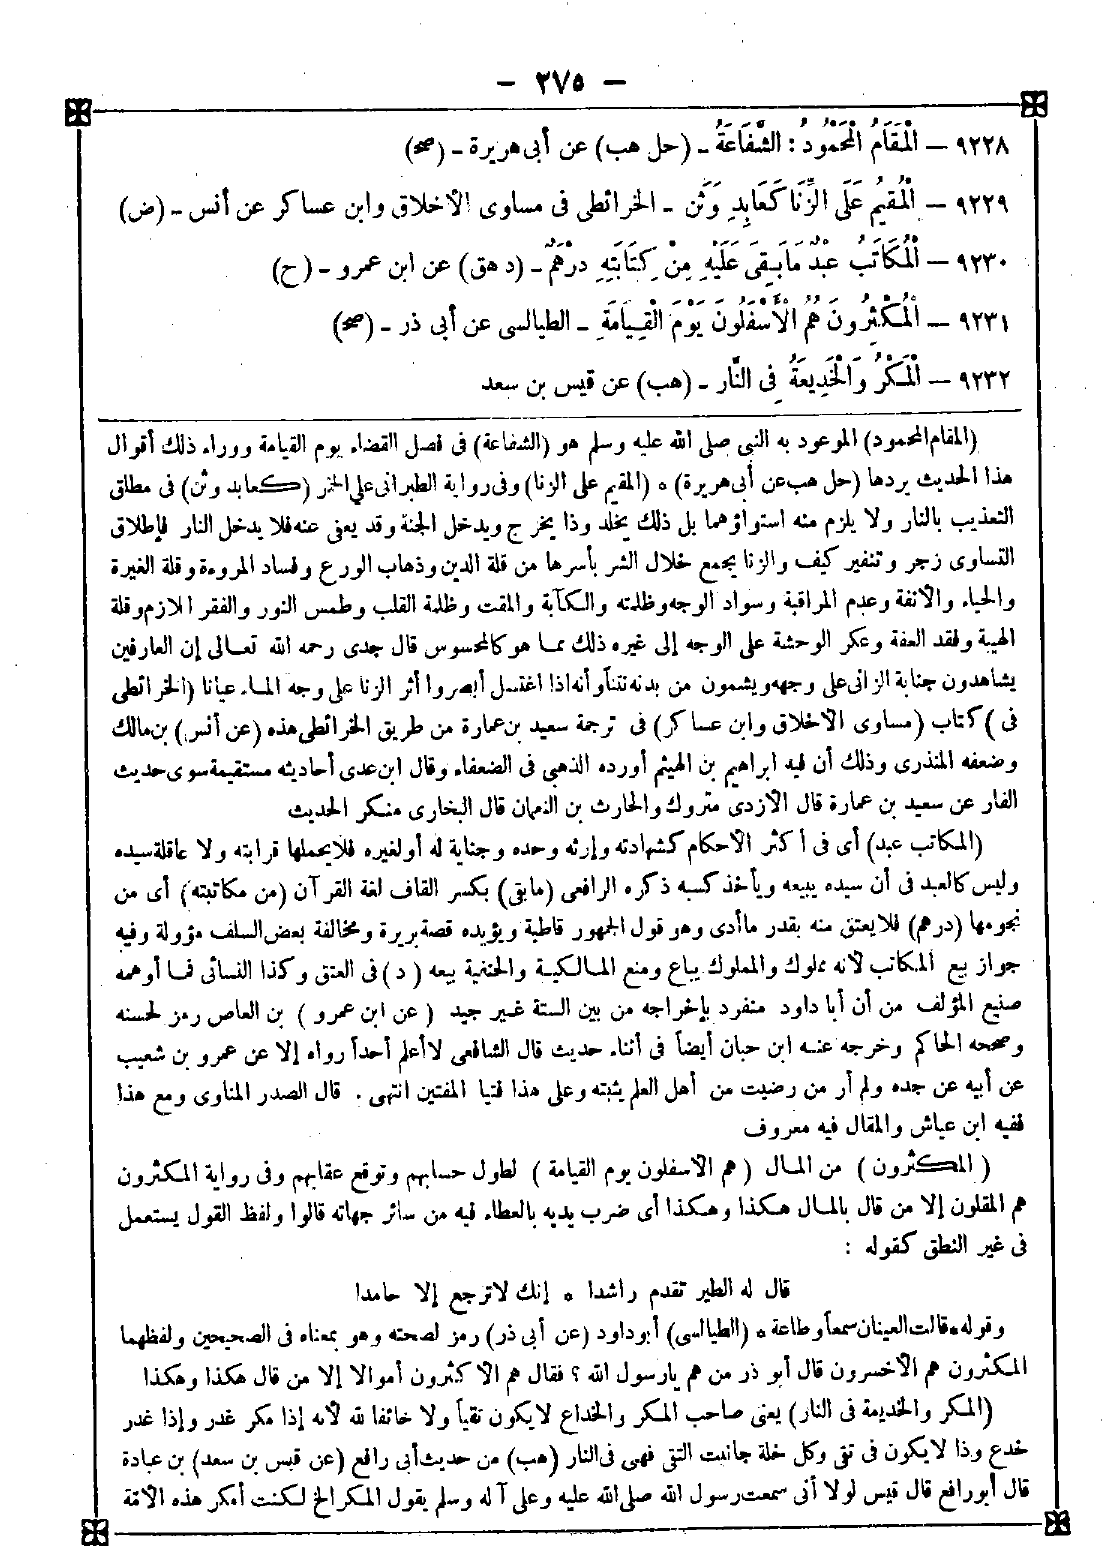 — ٢٧٥ —
٩٢٢٨ — الْمَقَامُ الْمَحْمُودُ: الشَّفَاعَةُ - (حل هب) عن أبى هريرة - (صح)
٩٢٢٩ — الْمُقِيمُ عَلَى الزِّنَا كَعَابِدِ وَثَنٍ - الخرائطى فى مساوى الأخلاق وابن عساكر عن أنس - (ض)
٩٢٣٠ — الْمُكَاتَبُ عَبْدٌ مَابَقِىَ عَلَيْهِ مِنْ كِتَابَتِهِ دِرْهَمٌ - (د هق) عن ابن عمرو - (ح)
٩٢٣١ — الْمُكْثِرُونَ هُمُ الْأَسْفَلُونَ يَوْمَ الْقِيَامَةِ - الطيالسى عن أبى ذر - (صح)
٩٢٣٢ — الْمَكْرُ وَالْخَدِيعَةُ فِى النَّارِ - (هب) عن قيس بن سعد
(المقام المحمود) الموعود به النبى صلى الله عليه وسلم هو (الشفاعة) فى فصل القضاء يوم القيامة ووراء ذلك أقوال
هذا الحديث يردها (حل هب عن أبى هريرة) • (المقيم على الزنا) وفى رواية الطبرانى على الخمر (كعابد وثن) فى مطلق
التعذيب بالنار ولا يلزم منه استواؤهما بل ذلك يخلد وذا يخرج ويدخل الجنة وقد يعفى عنه فلا يدخل النار فإطلاق
التساوى زجر وتنفير كيف والزنا يجمع خلال الشر بأسرها من قلة الدين وذهاب الورع وفساد المروءة وقلة الغيرة
والحياء والأنفة وعدم المراقبة وسواد الوجه وظلمته والكآبة والمقت وظلمة القلب وطمس النور والفقر اللازم وقلة
الهيبة وفقد العفة وعكر الوحشة على الوجه إلى غيره ذلك مما هو كالمحسوس قال جدى رحمه الله تعالى إن العارفين
يشاهدون جنابة الزانى على وجهه ويشمون من بدنه نتنا وأنه اذا اغتسل أبصروا أثر الزنا على وجه الماء عيانا (الخرائطى
فى) كتاب (مساوى الاخلاق وابن عساكر) فى ترجمة سعيد بن عمارة من طريق الخرائطى هذه (عن أنس) بن مالك
وضعفه المنذرى وذلك أن فيه ابراهيم بن الهيثم أورده الذهبى فى الضعفاء وقال ابن عدى أحاديثه مستقيمة سوى حديث
الغار عن سعيد بن عمارة قال الأزدى متروك والحارث بن النعمان قال البخارى منكر الحديث
(المكاتب عبد) أى فى أكثر الأحكام كشهادته وإرثه وحده وجناية له أو لغيره فلا يحملها قرابته ولا عاقلة سيده
وليس كالعبد فى أن سيده يبيعه ويأخذ كسبه ذكره الرافعى (مابقى) بكسر القاف لغة القرآن (من مكاتبته) أى من
نجومها (درهم) فلا يعتق منه بقدر ما أدى وهو قول الجمهور قاطبة ويؤيده قصة بريرة ومخالفة بعض السلف مؤولة وفيه
جواز بيع المكاتب لأنه مملوك والمملوك يباع ومنع المالكية والحنفية بيعه (د) فى العتق وكذا النسائى فما أوهمه
صنيع المؤلف من أن أبا داود منفرد بإخراجه من بين الستة غير جيد (عن ابن عمرو) بن العاص رمز لحسنه
وصححه الحاكم وخرجه عنه ابن حبان أيضاً فى أثناء حديث قال الشافعى لا أعلم أحداً رواه إلا عن عمرو بن شعيب
عن أبيه عن جده ولم أر من رضيت من أهل العلم يثبته وعلى هذا فتيا المفتين انتهى . قال الصدر المناوى ومع هذا
ففيه ابن عياش والمقال فيه معروف
(المكثرون) من المال (هم الاسفلون يوم القيامة) لطول حسابهم وتوقع عقابهم وفى رواية المكثرون
هم المقلون إلا من قال بالمال هكذا وهكذا أى ضرب يديه بالعطاء فيه من سائر جهاته قالوا ولفظ القول يستعمل
فى غير النطق كقوله :
قال له الطير تقدم راشدا • إنك لاترجع إلا حامدا
وقوله • قالت العينان سمعاً وطاعة • (الطيالسى) أبو داود (عن أبى ذر) رمز لصحته وهو بمعناه فى الصحيحين ولفظهما
المكثرون هم الأخسرون قال أبو ذر من هم يارسول الله ؟ فقال هم الاكثرون أموالا إلا من قال هكذا وهكذا
(المكر والخديعة فى النار) يعنى صاحب المكر والخداع لايكون تقياً ولا خائفا لله لأنه إذا مكر غدر وإذا غدر
خدع وذا لايكون فى تقى وكل خلة جانبت التقى فهى فى النار (هب) من حديث أبى رافع (عن قيس بن سعد) بن عبادة
قال أبو رافع قال قيس لولا أنى سمعت رسول الله صلى الله عليه وعلى آله وسلم يقول المكر الخ لكنت أمكر هذه الأمة